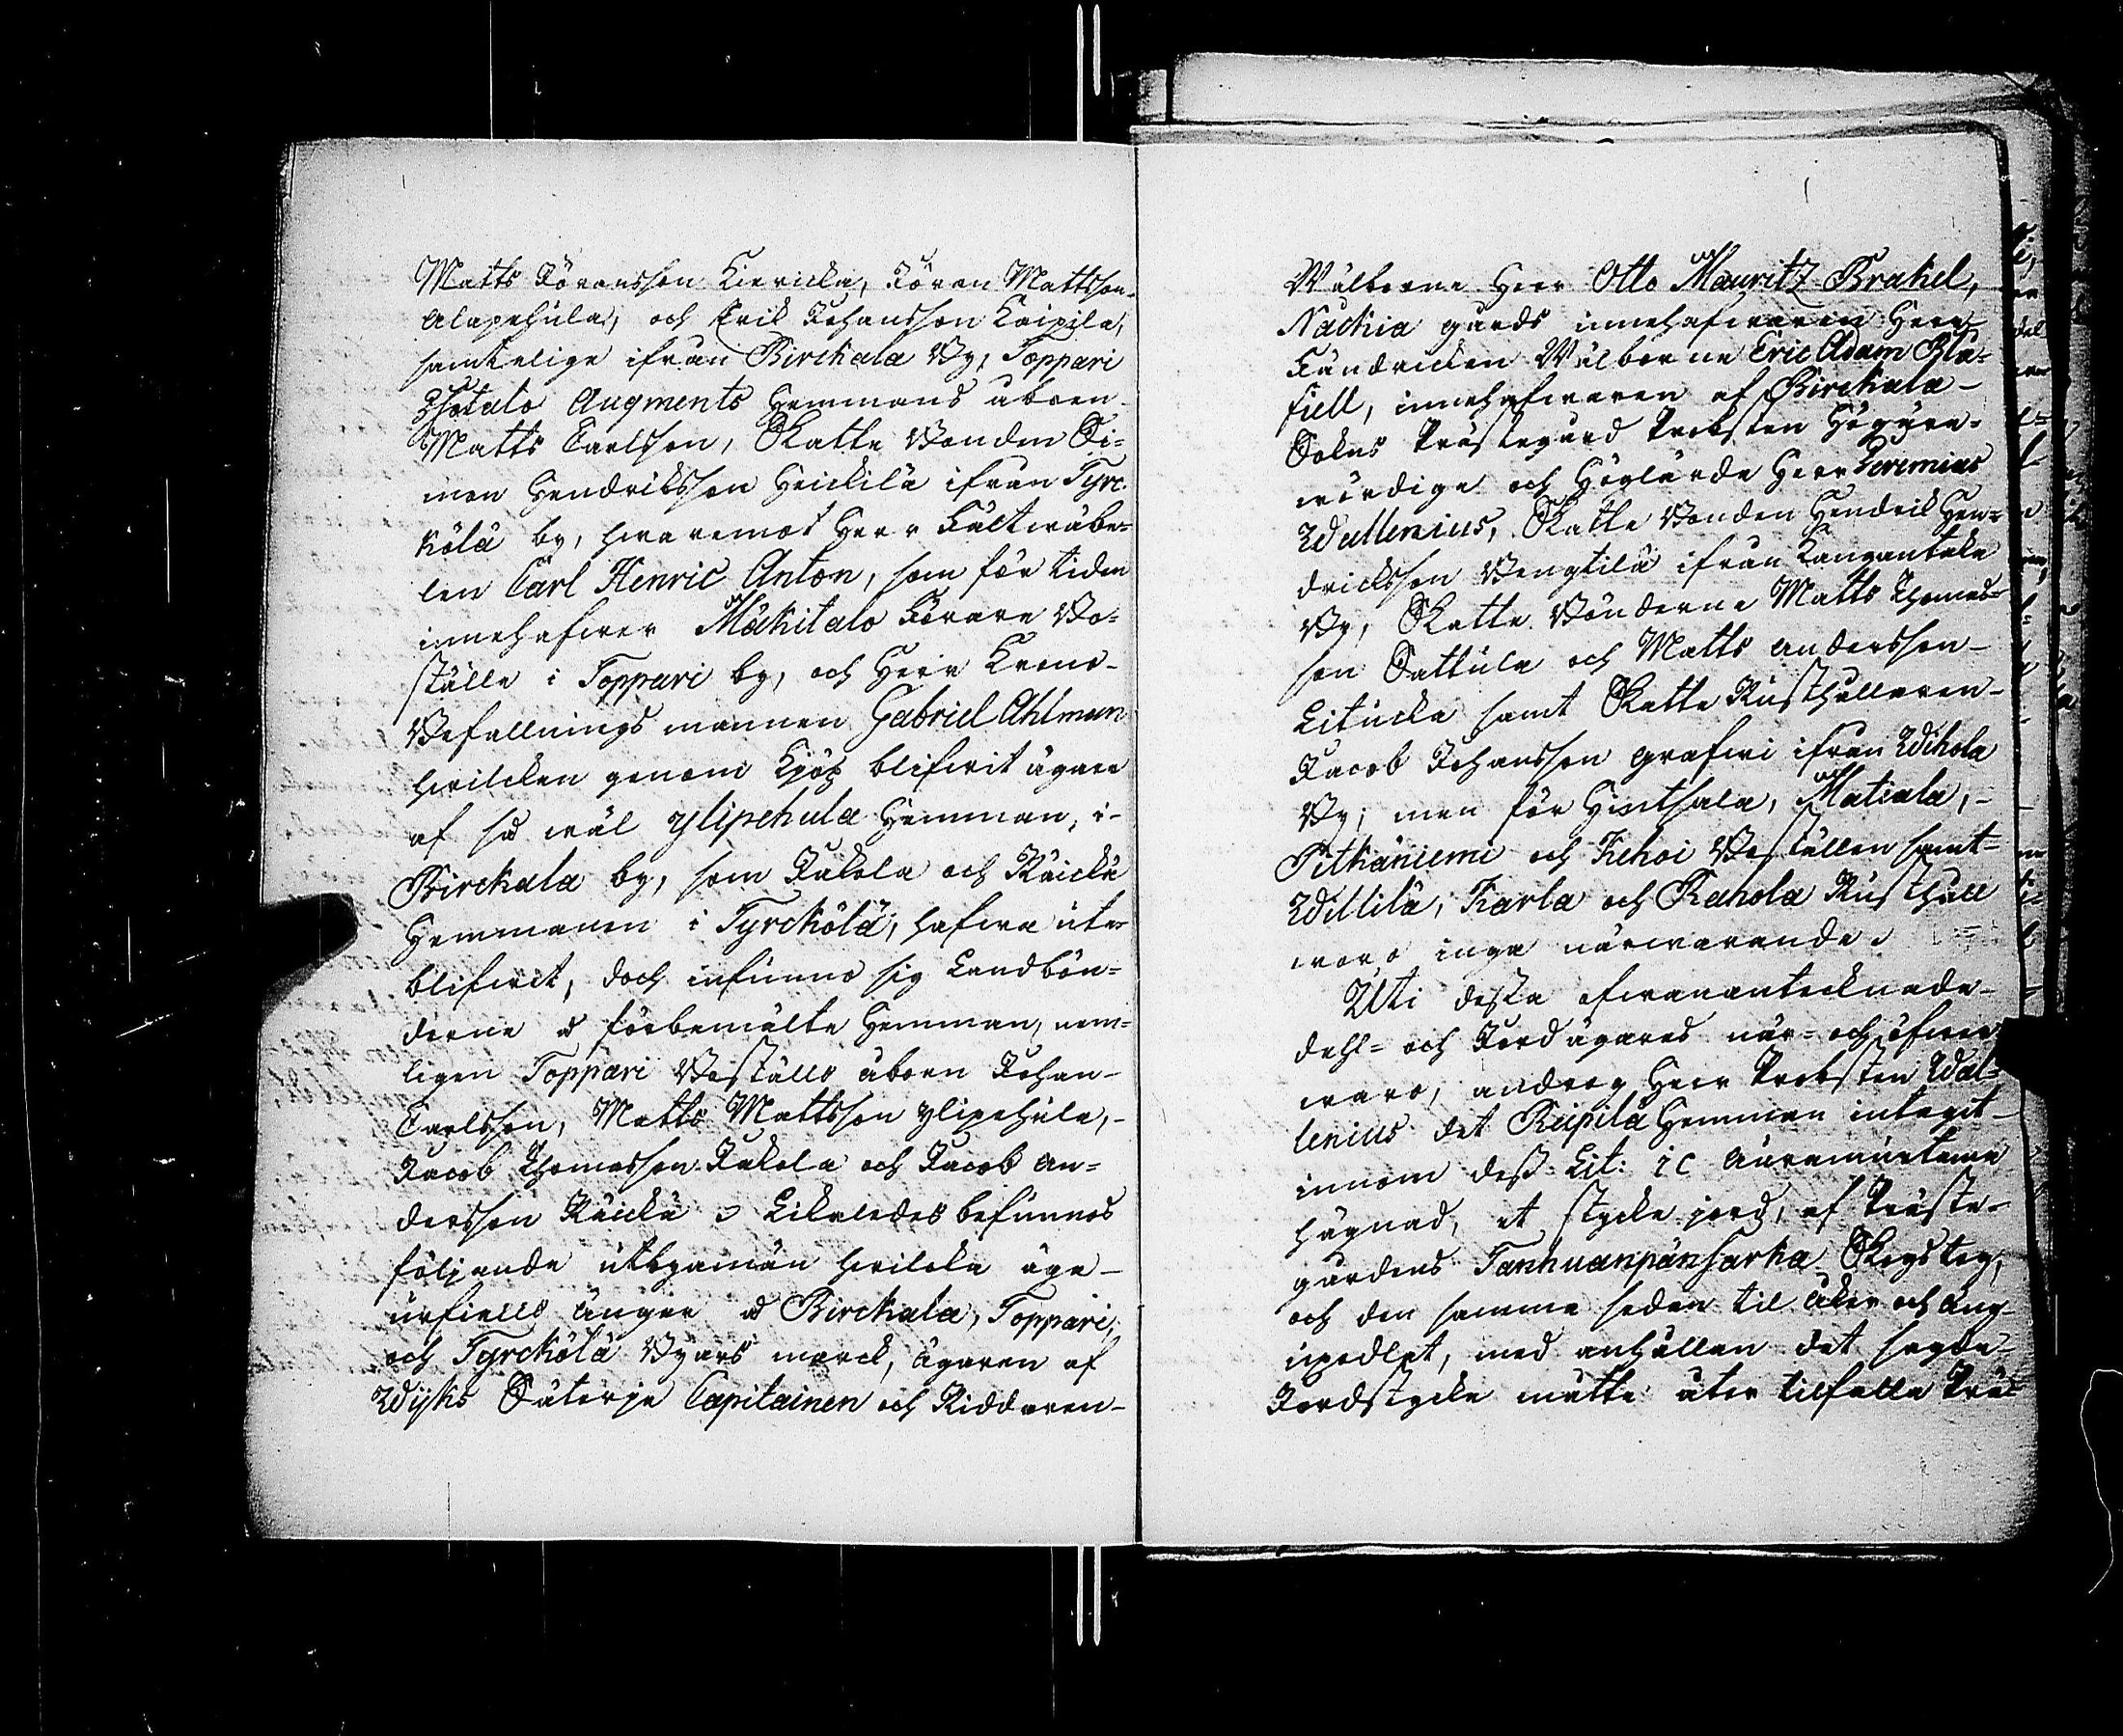 Matts Jöransson Kiericka, Jöran Mattsson
Alapehula, och Erik Johansson Kaipila,
samtelige ifrån Birckala By, Toppari
Isotalo Augments Hemmans åboen
Matts Carlsson, Skatte Bonden Si-
mon Hendriksson Heickilä ifrån Tyrc-
kölä by, hvaremot Herr Fältwäbe-
len Carl Henric Anton, som för tiden
innehafver Mäkitalo Förare Bo-
ställe i Toppari by, och Herr Krono-
Befallningsmannen Gabriel Ahlman
hvilcken genom Kjöp blifvit ägare
af så wäl Ylipehula Hemman, i
Birckala by, som Jukola och Räickä
Hemmanen i Tyrckölä, hafva ute-
blifvit, doch infunno sig Landbön-
derne å förbemälte Hemman, nem-
ligen Toppari Boställs åboen Johan
Carlsson, Matts Mattsson Ylipehula,
Jacob Thomasson Jukola och Jacob An-
dersson Räickä. Likaledes befunnos
följande utbyamän hvilcka äga
urfiells ängar å Birckala, Toppari,
och Tyrckölä Byars marck, ägaren af
Wijks Säterje Capitainen och Riddaren
Wälborne Herr Otto Mauritz Brakel,
Nackia gårds innehafvaren Herr
Fändricken Wälborne Eric Adam Blå-
fiell, innehafvaren af Birckala
Sokns Prästegård Probsten Högäre-
wördige och Höglärde Herr Jeremias
Wallenius, Skatte Bonden Hendrik Hen-
dricksson Bengtilä ifrån Kangantaka
By, Skatte Bönderne Matts Thomas-
son Sattula och Matts Andersson
Liucka samt Skatte Rusthållaren
Jacob Johansson Grafvi ifrån Wihola
By; men för Hinthala, Matiala,
Pitkäniemi och Kehoi Boställen samt
Willilä, Karla och Rahola Rusthåll
woro inga närwarande.
Uti dessa ofvanantecknade
dehl- och Jordägares när- och öfver
waro, androg Herr Probsten Wal-
lenius det Riipilä Hemman intagit
innom dess Lit: i C Auramuntama
hägnad, et stycke jord, af Präste-
gårdens Tanhuanpänsarka Skogsteg,
och den samma sedan til åker och äng
upodlat, med anhållan det sagde
Jordstycke måtte åter tilfalla Prä-